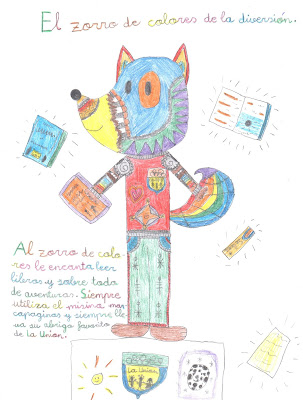 El zorro de colores de la diversión.
Al zorro de colo-
res le encanta leer
libros y sobre todo
de aventuras. Siempre
utiliza el misma mar
capaginas y siempre lle
va su abrigo favorito
de la Union.
La Union